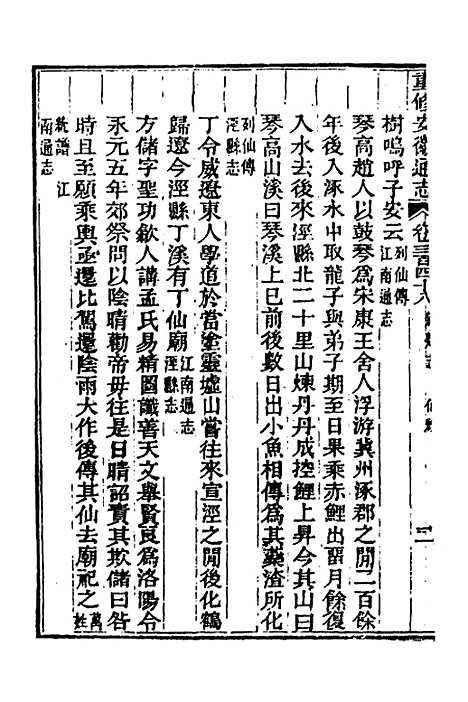 重修安徽通志 卷三百四十八 二
樹嗚呼子安云列仙傳江南通志
琴高趙人以鼓琴爲宋康王舍人浮游冀州涿郡之閒二百餘
年後入涿水中取龍子與弟子期至日果乘赤鯉出留月餘復
入水去後來涇縣北二十里山煉丹丹成控鯉上昇今其山曰
琴高山溪曰琴溪上巳前後數日出小魚相傳爲其藥渣所化
列仙傳涇縣志
丁令威遼東人學道於當塗靈墟山嘗往來宣涇之閒後化鶴
歸遼今涇縣丁溪有丁仙廟江南通志涇縣志
方儲字聖功歙人講孟氏易精圖讖善天文舉賢良爲洛陽令
永元五年郊祭問以陰晴勸帝毋往是日晴詔責其欺儲曰咎
時且至願乘輿亟還比駕還陰雨大作後傳其仙去廟祀之萬姓
統譜江南通志